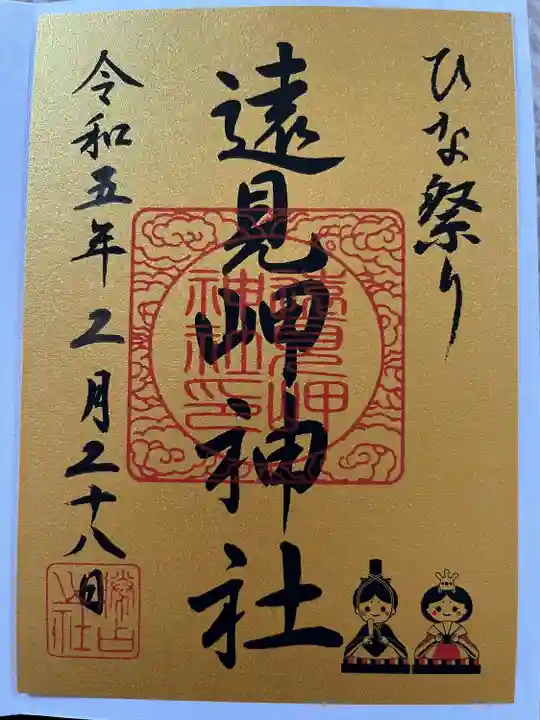 ひな祭り
遠見岬神社
遠見岬
神社印
令和五年 二月二十八日